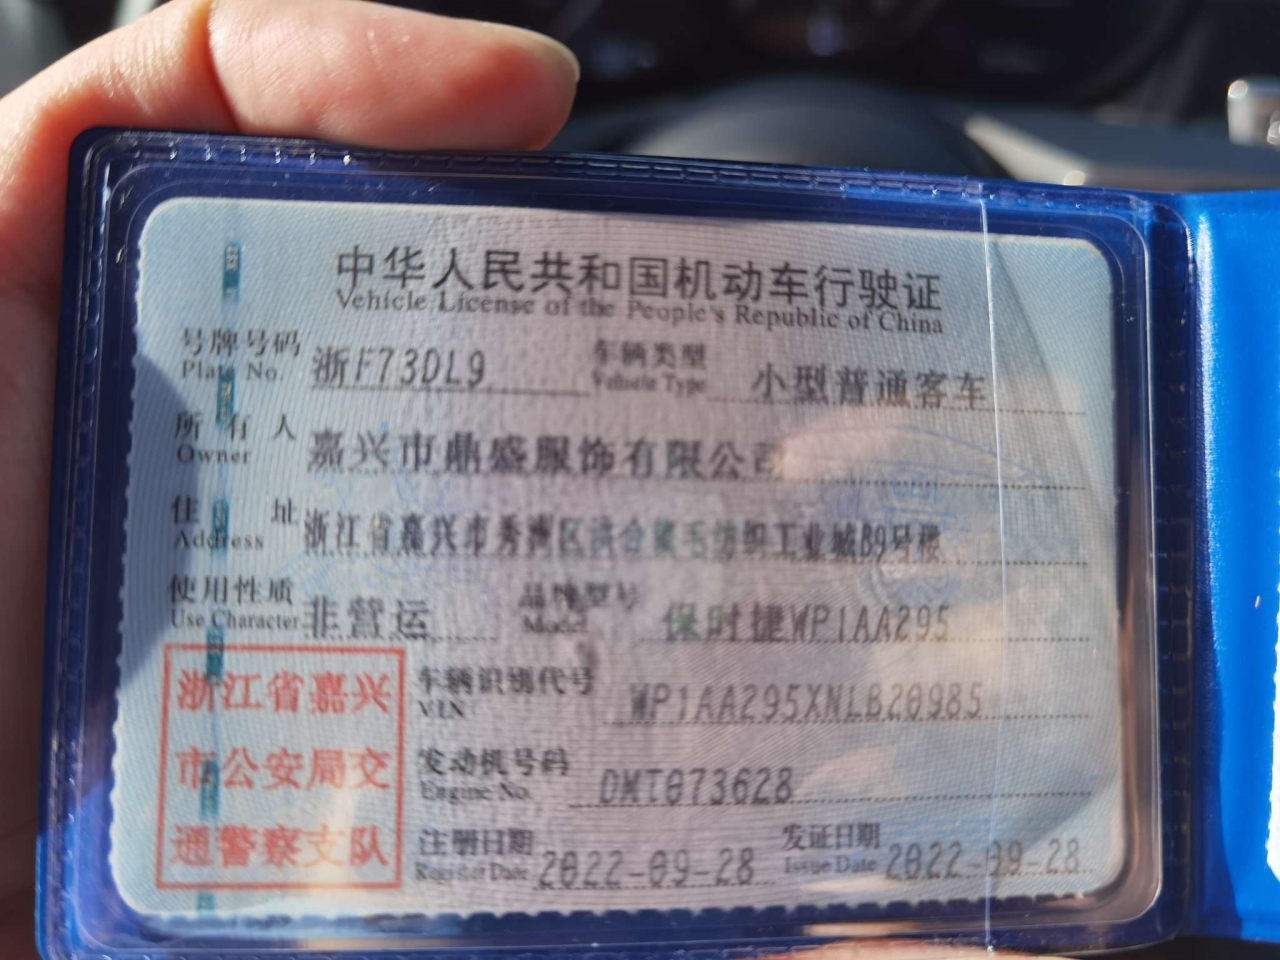 中华人民共和国机动车行驶证
Vehicle License of the People's Republic of China
号牌号码 浙F73DL9 车辆类型 小型普通客车
Plate No. Vehicle Type
所有人 嘉兴市鼎盛服饰有限公司
Owner
住址 浙江省嘉兴市秀洲区洪合镇毛纺织工业城B9号楼
Address
使用性质 非营运 品牌型号 保时捷WP1AA295
Use Character Model
浙江省嘉兴
市公安局交
通警察支队
车辆识别代号 WP1AA295XNLB20985
VIN
发动机号码 DMT073628
Engine No.
注册日期 2022-09-28 发证日期 2022-09-28
Register Date Issue Date